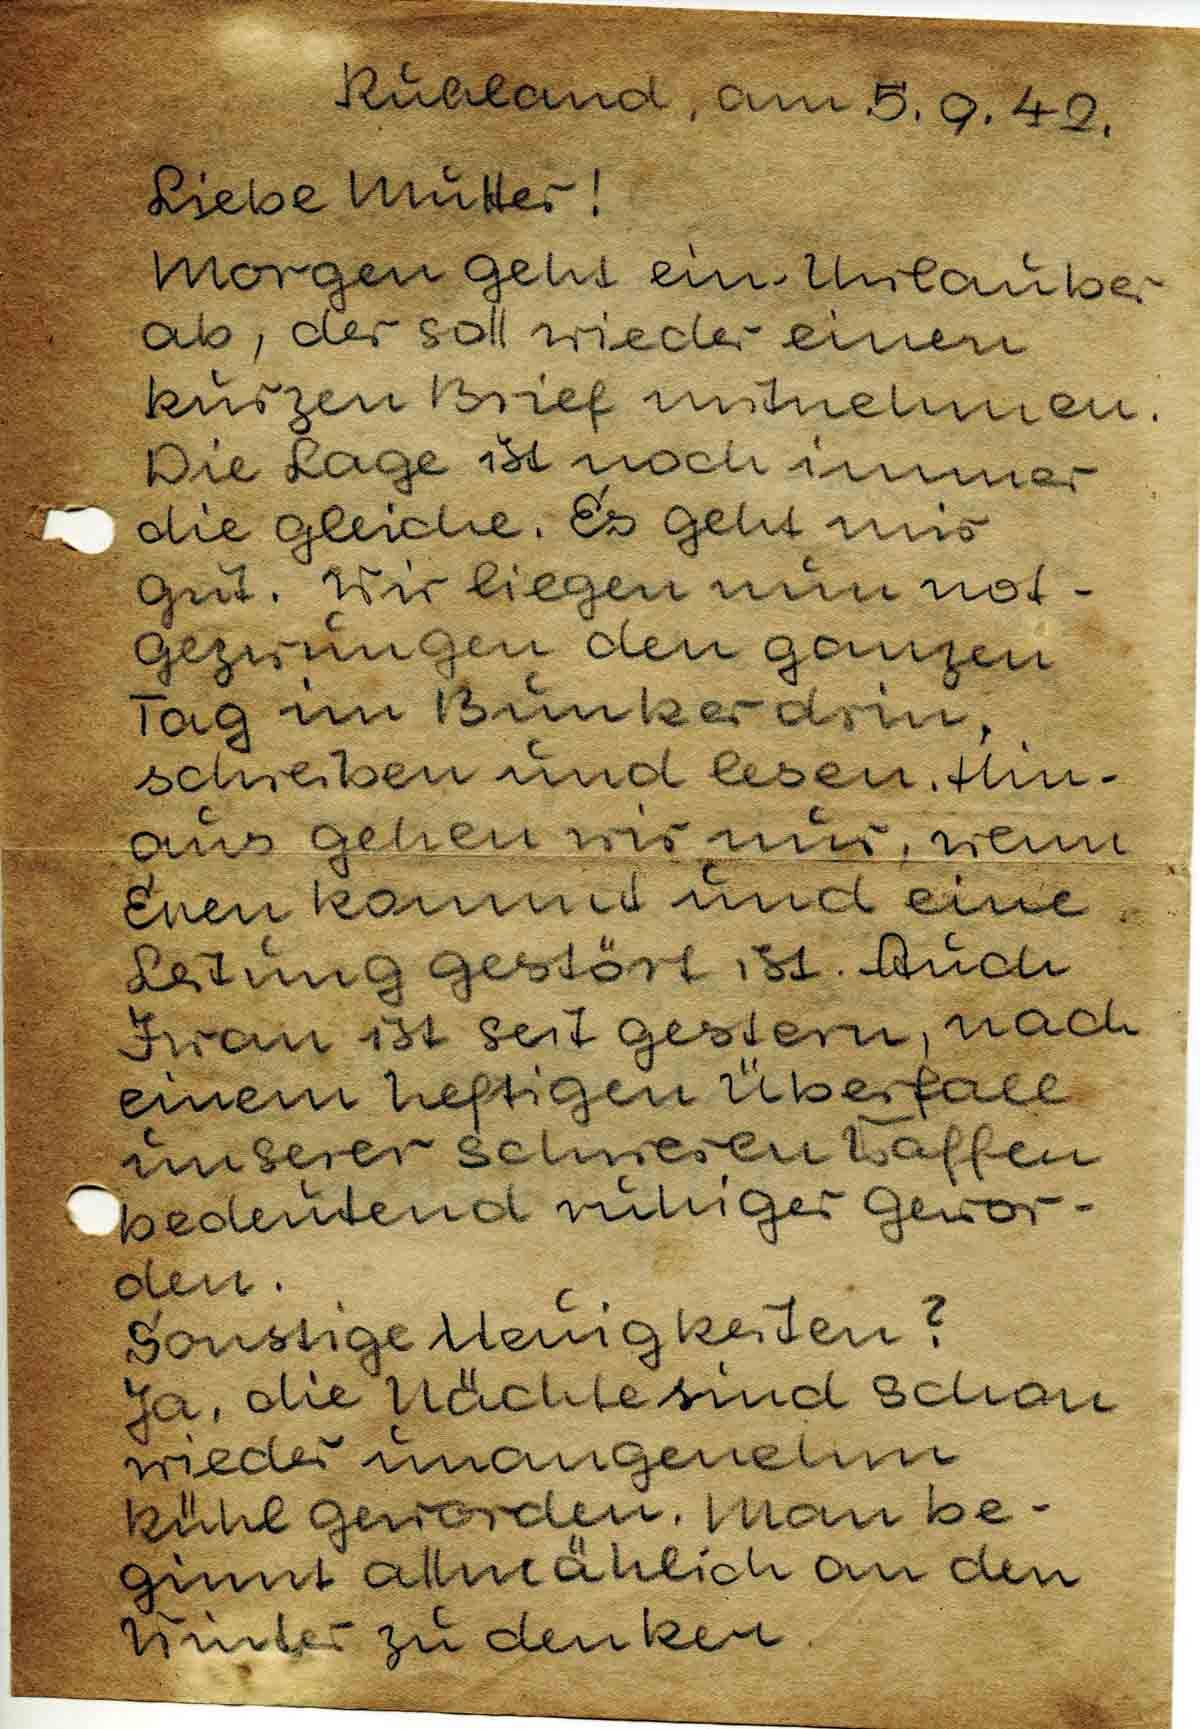 Rußland, am 5.9.42.
Liebe Mutter!
Morgen geht ein Urlauber
ab, der soll wieder einen
kurzen Brief mitnehmen.
Die Lage ist noch immer
die gleiche. Es geht mir
gut. Wir liegen nun not-
gezwungen den ganzen
Tag im Bunker drin,
schreiben und lesen. Hin-
aus gehen wir nur, wenn
Eßen kommt und eine
Leitung gestört ist. Auch
Iwan ist seit gestern, nach
einem heftigen Überfall
unserer schweren Waffen
bedeutend ruhiger gewor-
den.
Sonstige Neuigkeiten?
Ja, die Nächte sind schon
wieder unangenehm
kühl geworden. Man be-
ginnt allmählich an den
Winter zu denken.